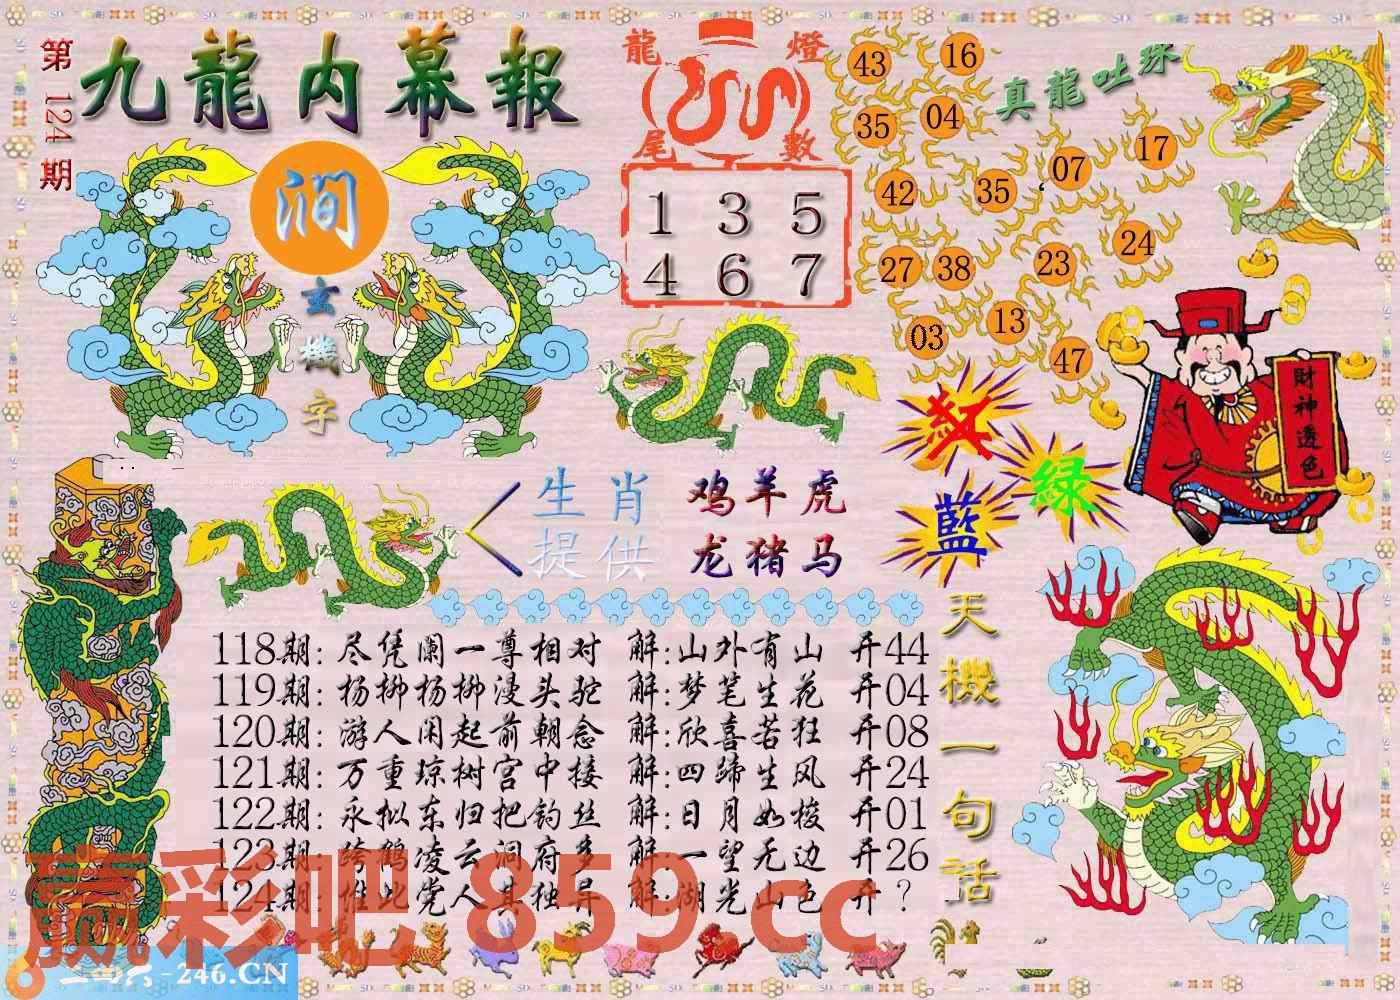 第124期
九龍内幕報
澗
玄機字
龍燈尾數
1 3 5
4 6 7
真龍吐珠
43 16
35 04
42 35 07 17
27 38 23 24
03 13 47
財神透色
紅
绿
藍
生肖提供
鸡羊虎
龙猪马
天機一句話
118期: 尽凭阑一尊相对 解:山外有山 开44
119期: 杨柳杨柳漫头驼 解:梦笔生花 开04
120期: 游人闲起前朝念 解:欣喜若狂 开08
121期: 万重琼树宫中接 解:四蹄生风 开24
122期: 永拟东归把钓丝 解:日月如梭 开01
123期: 跨鹤凌云洞府多 解:一望无边 开26
124期: 惟此党人其独异 解:湖光山色 开？
赢彩吧 859.cc
二四六-246.CN